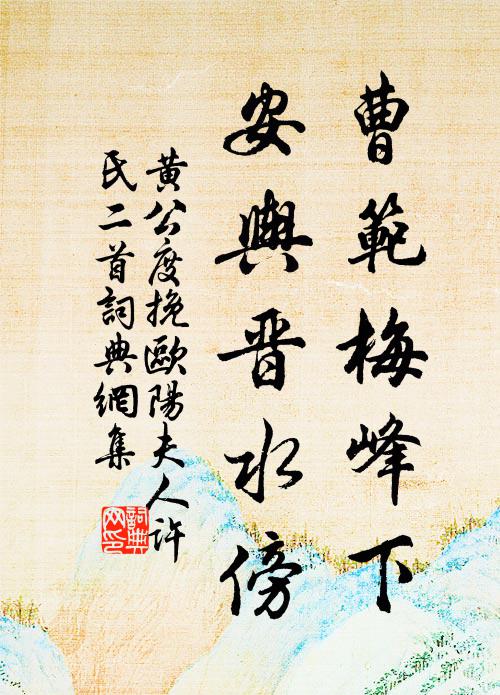 曹範梅峰下
安輿晋水傍
黄公度挽歐陽夫人許
氏二首詞典網集
詞典
网